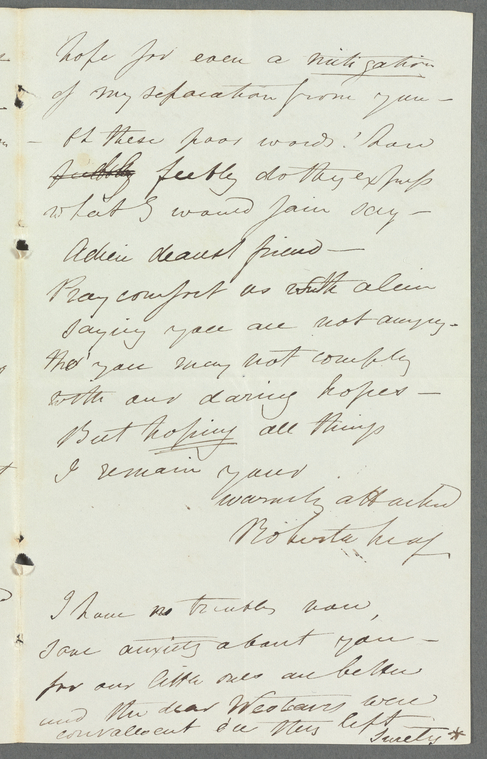 hope for even a mitigation
of my separation from you —
Oh these poor words! how
feebly do they express
what I would fain say —
Adieu dearest friend —
Pray comfort us with a line
saying you are not angry —
tho' you may not comply
with our daring hopes —
But hoping all things
I remain your
warmly attached
Roberta
I have no troubles now,
save anxiety about you —
for our little ones are better
and the dear Westons were
convalescent ere this left